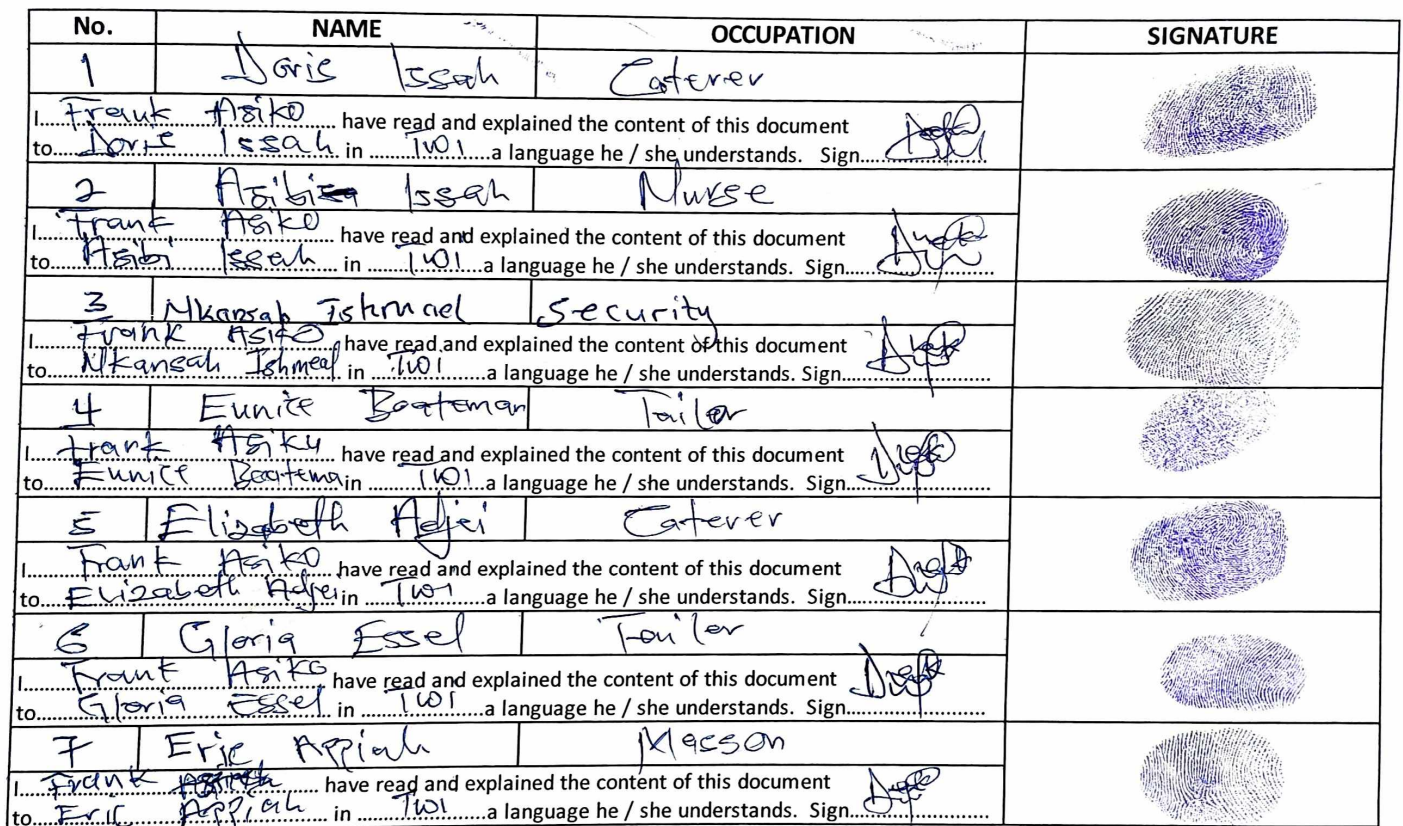 No. NAME OCCUPATION SIGNATURE
1 Doris Issah Caterer
I....Frank Asiko.... have read and explained the content of this document
to....Doris Issah.... in ....Twi....a language he / she understands. Sign....
2 Asibi Issah Nurse
I....Frank Asiko.... have read and explained the content of this document
to....Asibi Issah.... in ....Twi....a language he / she understands. Sign....
3 Nkansah Ishmael Security
I....Frank Asiko.... have read and explained the content of this document
to....Nkansah Ishmeal.... in ....Twi....a language he / she understands. Sign....
4 Eunice Boateman Tailor
I....Frank Asiku.... have read and explained the content of this document
to....Eunice Boatema in ....Twi....a language he / she understands. Sign....
5 Elizabeth Adjei Caterer
I....Frank Asiko.... have read and explained the content of this document
to....Elizabeth Adjei in ....Twi....a language he / she understands. Sign....
6 Gloria Essel Tailor
I....Frank Asiko.... have read and explained the content of this document
to....Gloria Essel.... in ....Twi....a language he / she understands. Sign....
7 Eric Appiah Masson
I....Frank .... have read and explained the content of this document
to....Eric Appiah.... in ....Twi....a language he / she understands. Sign....